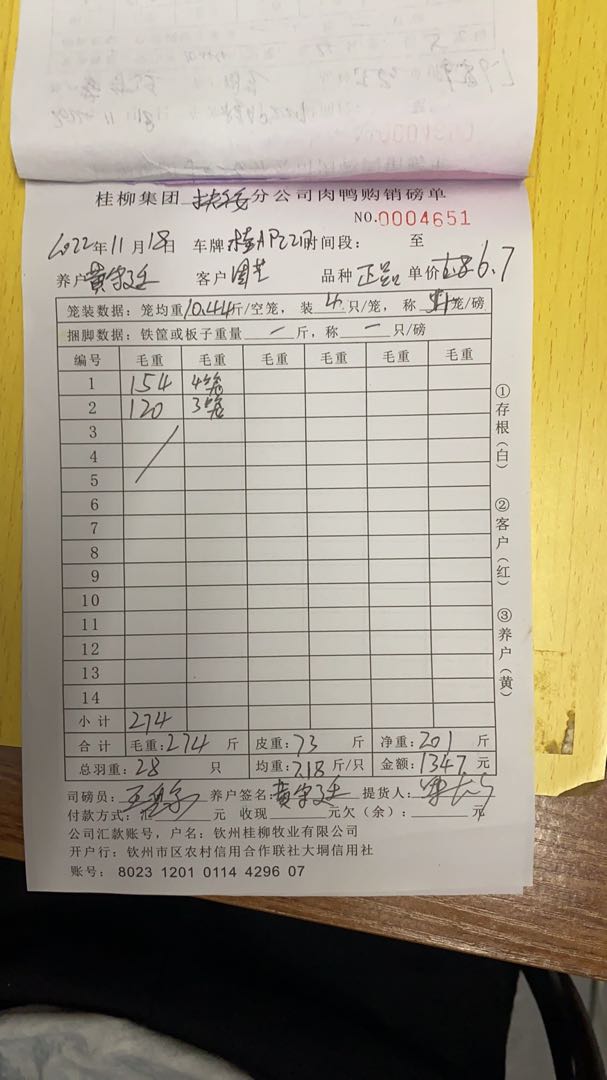 桂柳集团 扶绥 分公司肉鸭购销磅单
NO.0004651
2022年11月18日 车牌 时间段： 至
养户 黄 客户 品种 正品 单价 6.7
笼装数据：笼均重10.44斤/空笼，装4只/笼，称 笼/磅
捆脚数据：铁筐或板子重量 一 斤，称 一 只/磅
编号 毛重 毛重 毛重 毛重 毛重 毛重
1 154 4笼
2 120 3笼
3
4
5
6
7
8
9
10
11
12
13
14
小计 274
合计 毛重：274 斤 皮重：73 斤 净重：201 斤
总羽重：28 只 均重：7.18斤/只 金额：1347元
司磅员： 养户签名：黄 提货人：
付款方式：汇 元 收现 元欠（余）： 元
公司汇款账号，户名：钦州桂柳牧业有限公司
开户行：钦州市区农村信用合作联社大垌信用社
账号： 8023 1201 0114 4296 07
①存根（白）
②客户（红）
③养户（黄）